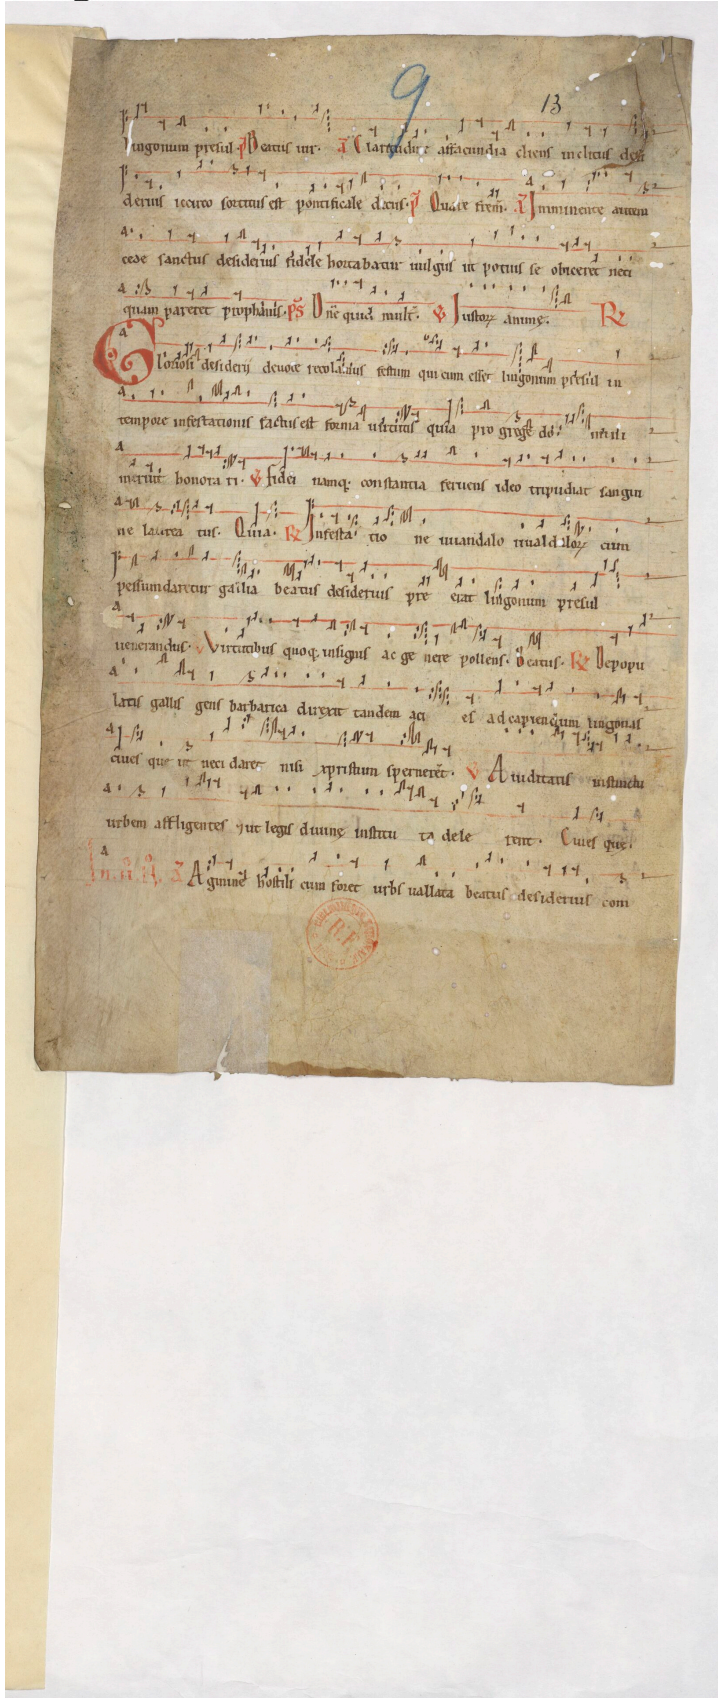 9
13
lingonum presul. p̄s Beatus uir. a Claritudine affacundia cliens inclitus desi
derius iccirco sortitus est pontificale decus. p̄s Quare frem̄. a Imminente autem
cede sanctus desiderius fidele hortabatur uulgus ut potius se obiceret neci
quam pareret prophanis. p̄s Dn̄e quid mult̄. V Iustoꝝ animę. R
Gloriosi desiderii deuote recolamus festum qui cum esset lingonum presul in
tempore infestationis factus est forma uirtutis quia pro grege do mini
meruit honora ri. V Fidei namq; constantia feruens ideo tripudiat sangui
ne laurea tus. Quia. R Infesta tio ne uuandalo
pessumdaretur gallia beatus desiderius pre erat lingonum presul
uenerandus. V Virtutibus quoq; insignis ac ge nere pollens. Beatus. R Depopu
latis gallis gens barbarica direxit tandem aci es ad capiendum lingonas
ciues que ut neci daret nisi xpristum spernerēt. V Auiditatis instinctu
urbem affligentes ut legis diuinę institu ta dele rent. Ciues que.
a Agmine hostili cum foret urbs uallata beatus desiderius com
R.F.